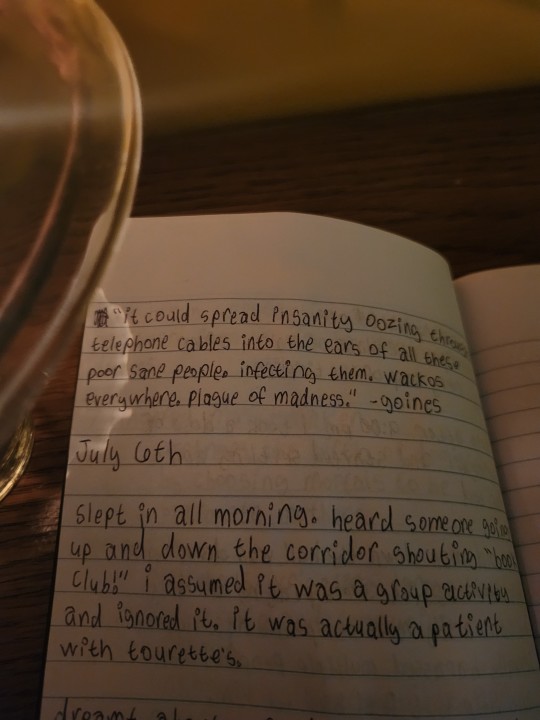 "it could spread insanity oozing through
telephone cables into the ears of all these
poor sane people. infecting them. wackos
everywhere. plague of madness." -goines
July 6th
slept in all morning. heard someone going
up and down the corridor shouting "book
club!" i assumed it was a group activity
and ignored it. it was actually a patient
with tourette's.
dreamt